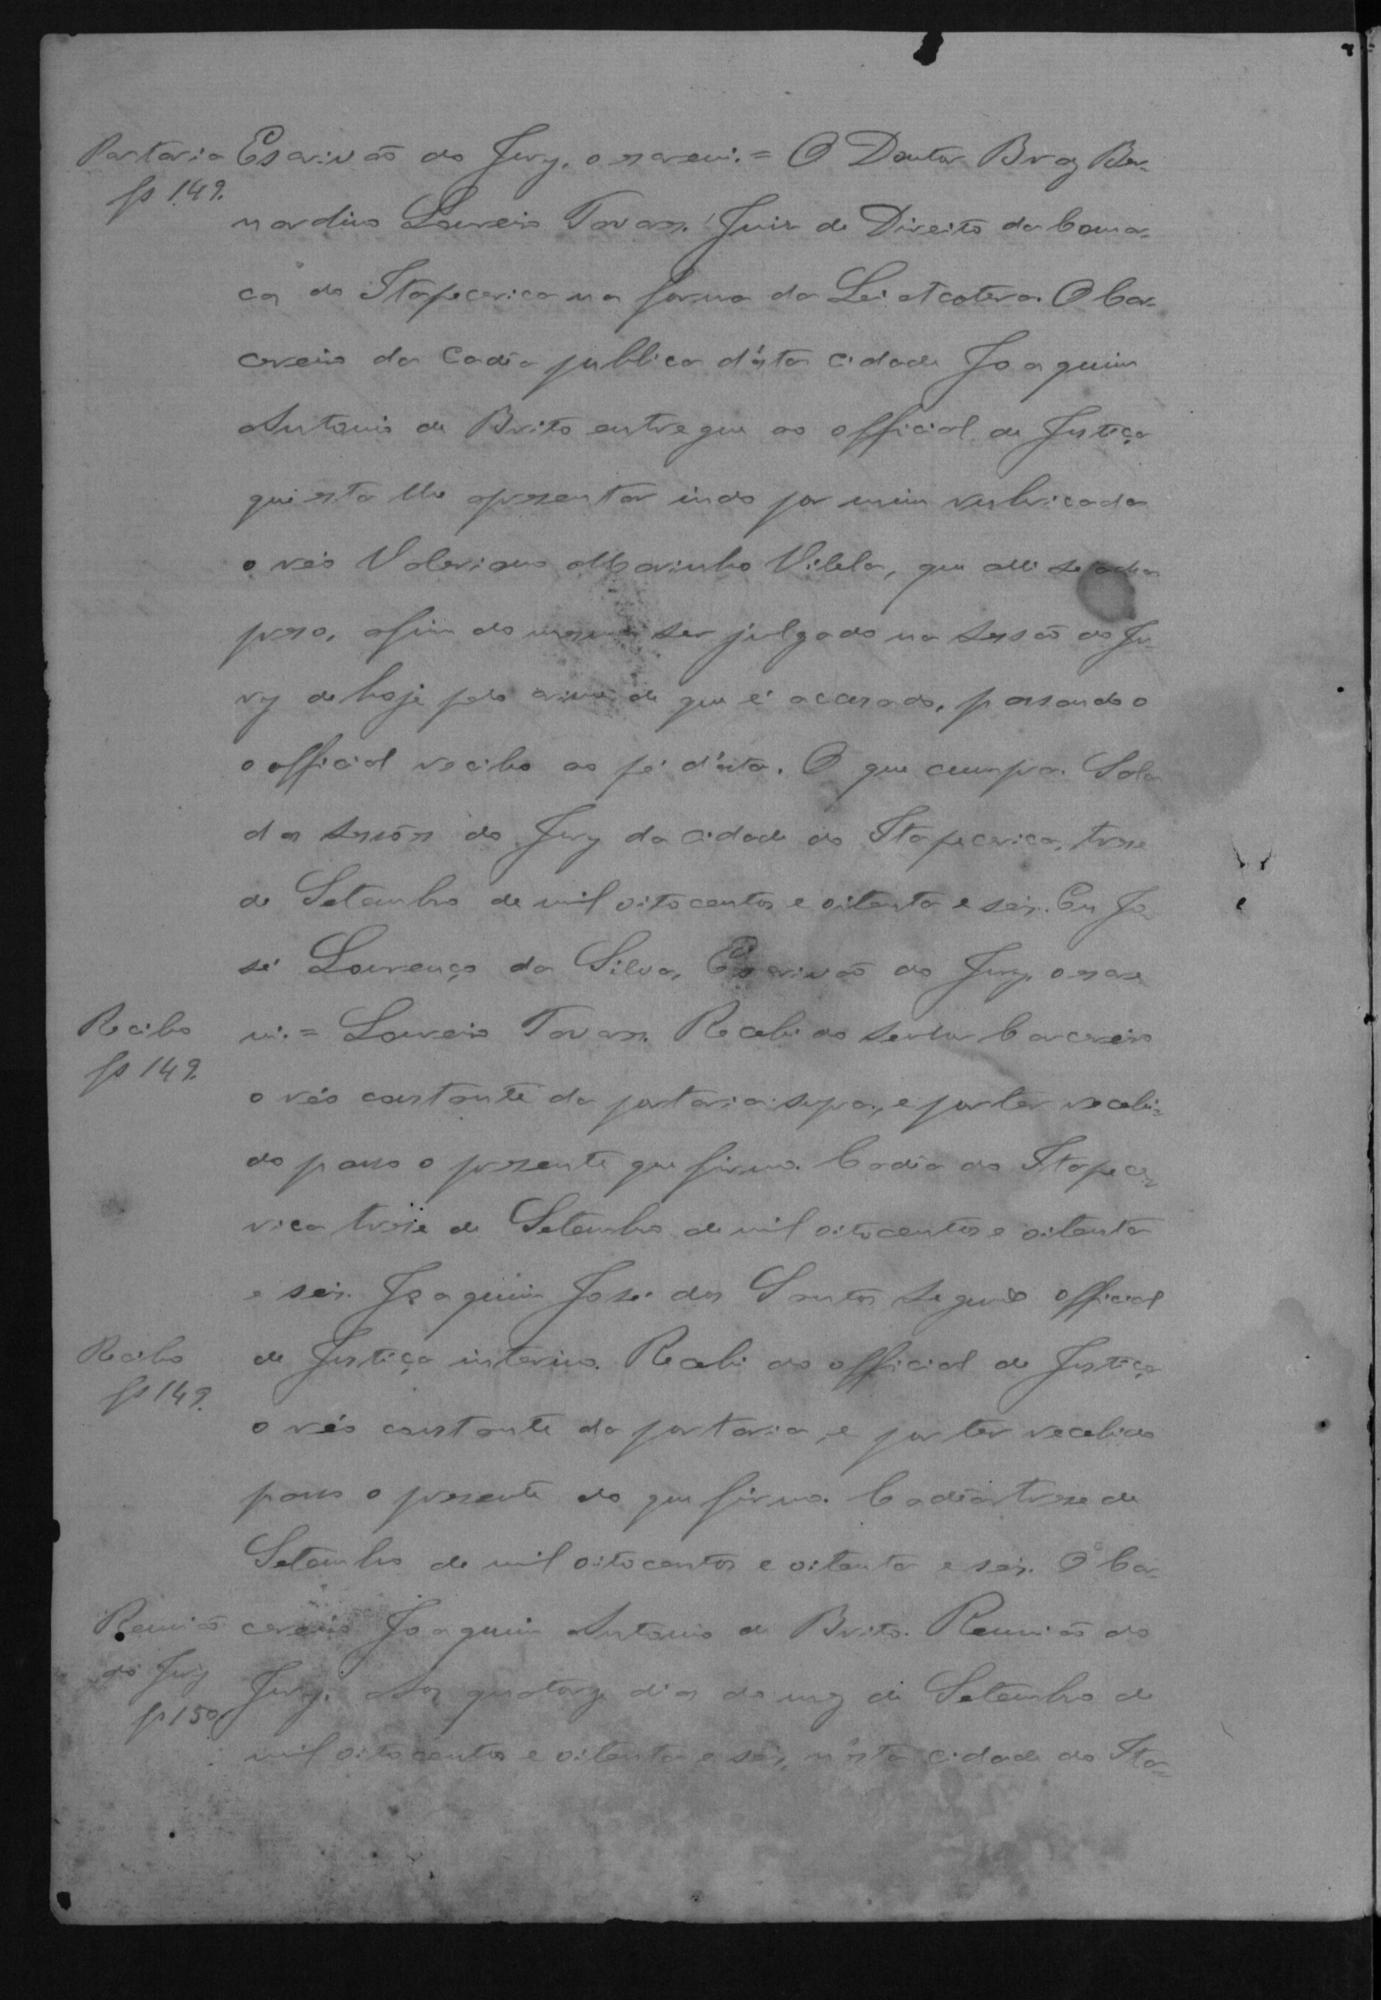 Portaria
fs 149.
Escrivão do Jury, o escrevi. = O Doutor Braz Ber-
nardino Loureiro Tavares. Juiz de Direito da Comar-
ca do Itapecerica na forma da Lei etcetera. O Car-
cereiro da Cadêa publica d'ésta cidade Joaquim
Antonio de Brito entregue ao official de Justiça
que ésta lhe apresentar indo por mim rubricada
o réo Valeriano Marinho Vilela, que alli se acha
preso, afim do mesmo ser julgado na sessão do Ju-
ry de hoje pelo crime de que é accusado, passando o
o official recibo ao pé d'ésta. O que cumpra. Sala
das sessões do Jury da cidade do Itapecerica, trese
de Setembro de mil oitocentos e oitenta e seis. Eu Jo-
sé Lourenço da Silva, Escrivão do Jury, o escre
Recibo
fs 149.
vi. = Loureiro Tavares. Recebi do senhor Carcereiro
o réo constante da portaria supra, e por ter recebi-
do passo o presente que firmo. Cadêa do Itapece-
rica trese de Setembro de mil oitocentos e oitenta
e seis. Joaquim José dos Santos segundo official
Recibo
fs 149.
de Justiça interino. Recebi do official de Justiça
o réo constante da portaria, e por ter recebido
passo o presente do que firmo. Cadêa trese de
Setembro de mil oitocentos e oitenta e seis. O Car-
Reunião
do Jury
fs 150.
cereiro Joaquim Antonio de Brito. Reunião do
Jury. Aos quatorze dias do mez de Setembro de
mil oitocentos e oitenta e seis, n'ésta cidade do Ita-